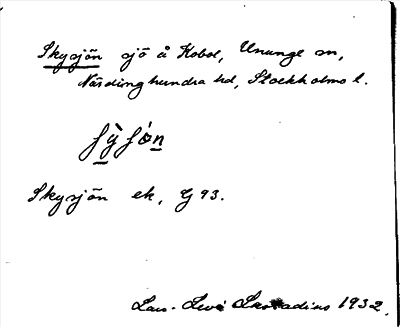 Skysjön sjö å Kobol, Ununge sn,
Närdinghundra hd, Stockholms l.
Skysjön ek, G 93.
Lars-Levi Læstadius 1932.